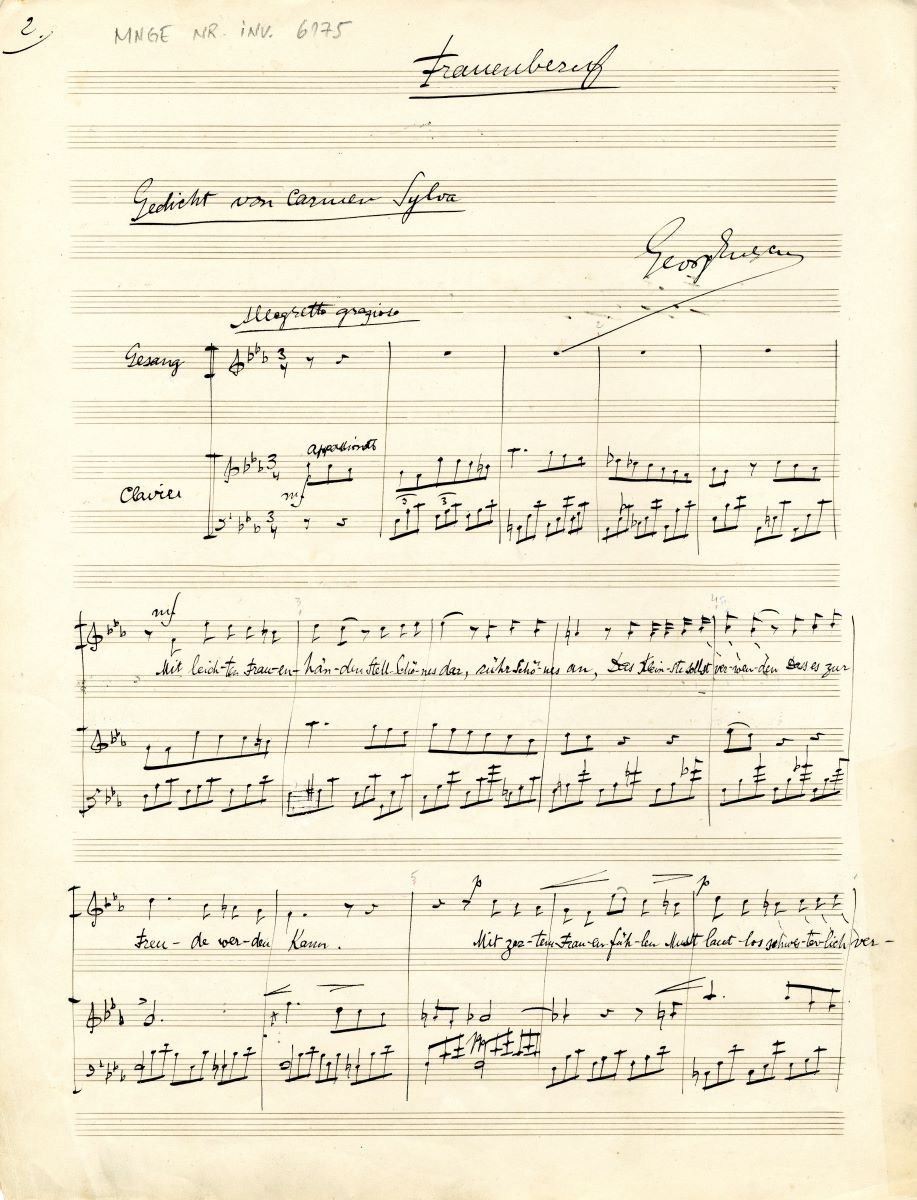 2.
MNGE NR. INV. 6175
Frauenberuf
Gedicht von Carmen Sylva
Georg Enescu
Allegretto grazioso
Gesang
appassionato
Clavier
mf
3 3
mf
Mit leich-ten Frau-en-hän-den stell Schö-nes dar, rühr Schö-nes an, Das Klein-ste sollst ver-wen-den Dass es zur
p p
Freu-de wer-den Kann. Mit zar-tem Frau-en-füh-len Musst laut-los schwes-ter-lich ver-